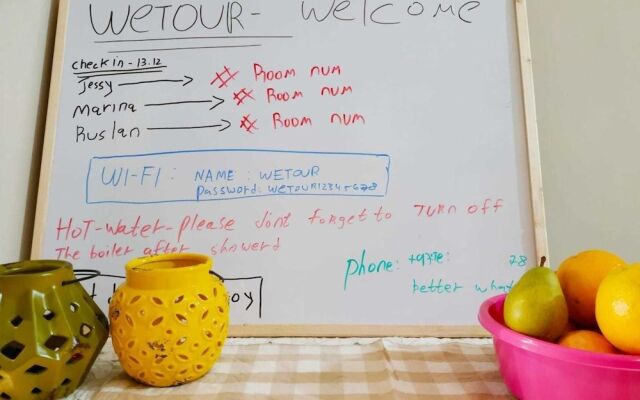 WETOUR- Welcome
check in - 13.12
Jessy # Room num
Marina # Room num
Ruslan # Room num
WI-FI: NAME: WETOUR
password: WETOUR12345678
HOT-water-please dont forget to TURN OFF
The boiler after showerd
phone: +972: 28
better what
oy